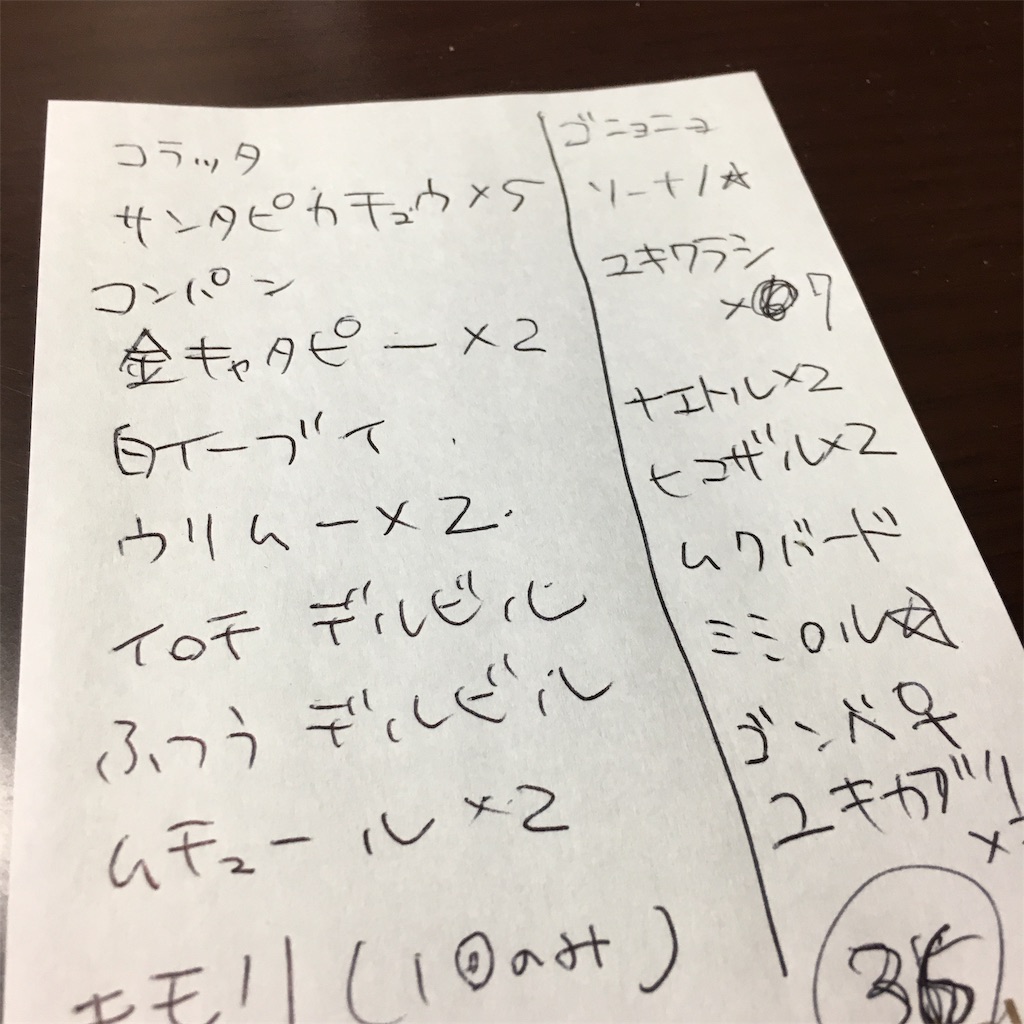 コラッタ
サンタピカチュウ×5
コンパン
金キャタピー×2
白イーブイ
ウリムー×2.
イロチ デルビル
ふつう デルビル
ムチュール×2
キモリ(1回のみ)
ゴニョニョ
ソーナノ☆
ユキワラシ
×7
ナエトル×2
ヒコザル×2
ムクバード
ミミロル☆
ゴンベ♀
ユキカブリ
×